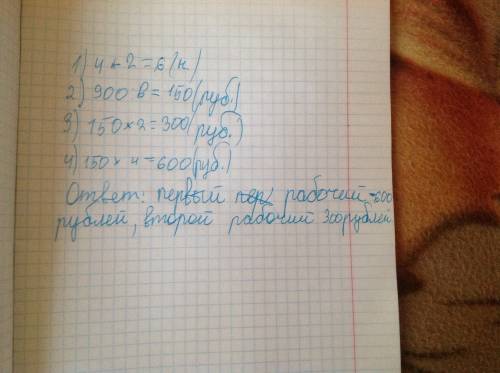 1) 4 + 2 = 6 (н)
2) 900 : 6 = 150 (руб.)
3) 150 × 2 = 300 (руб.)
4) 150 × 4 = 600 (руб.)
Ответ: первый рабочий - 600
рублей, второй рабочий 300 рублей